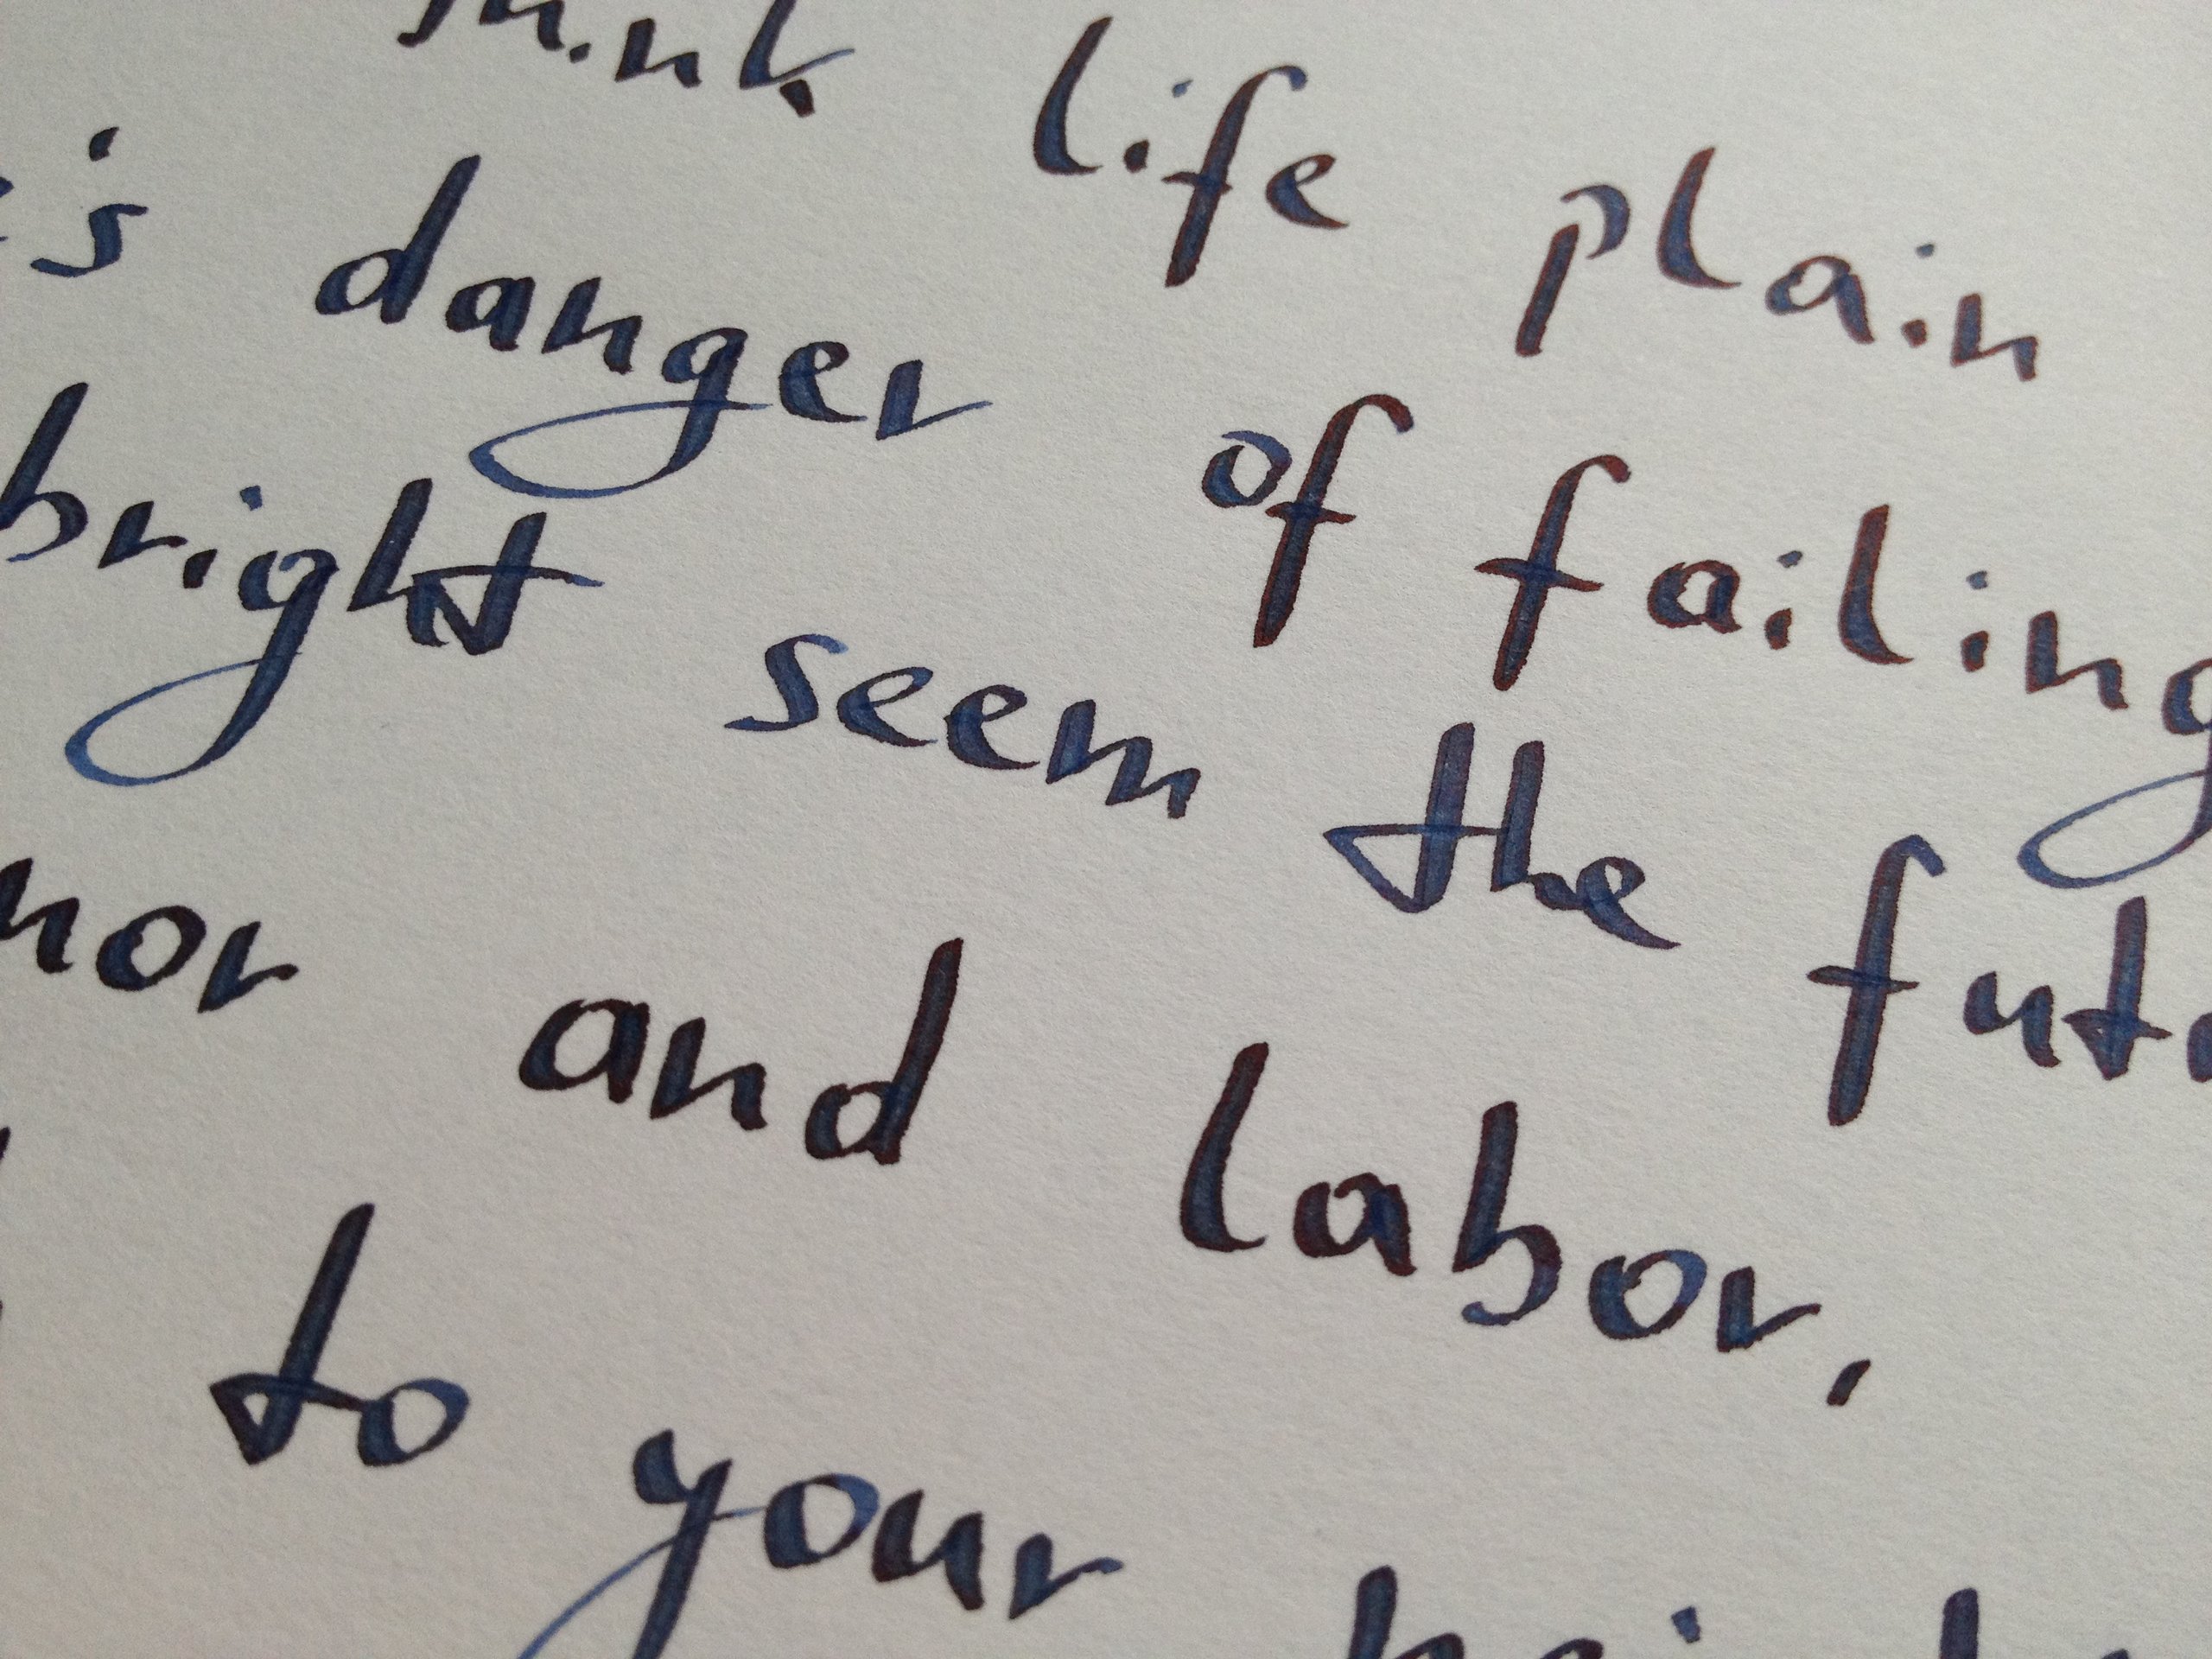 think life plain
's danger of failing
bright seem the futu
nor and labor,
to your